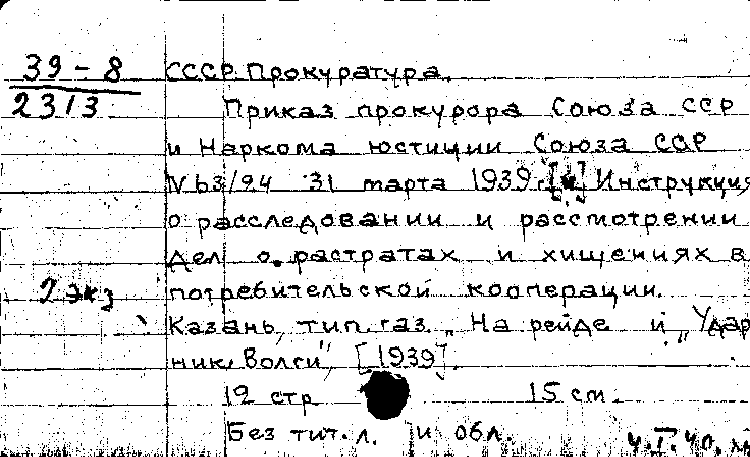 39-8
2313
СССР. Прокуратура.
Приказ прокурора Союза ССР
и Наркома юстиции Союза ССР
№ 63/24 31 марта 1939 г. [и] Инструкция
о расследовании и рассмотрении
дел о растратах и хищениях в
потребительской кооперации.
2 экз
Казань, тип. газ. „На рейде и „Удар
ник Волги", [1939].
12 стр 15 см.
Без тит. л. и обл.
4.I.40.